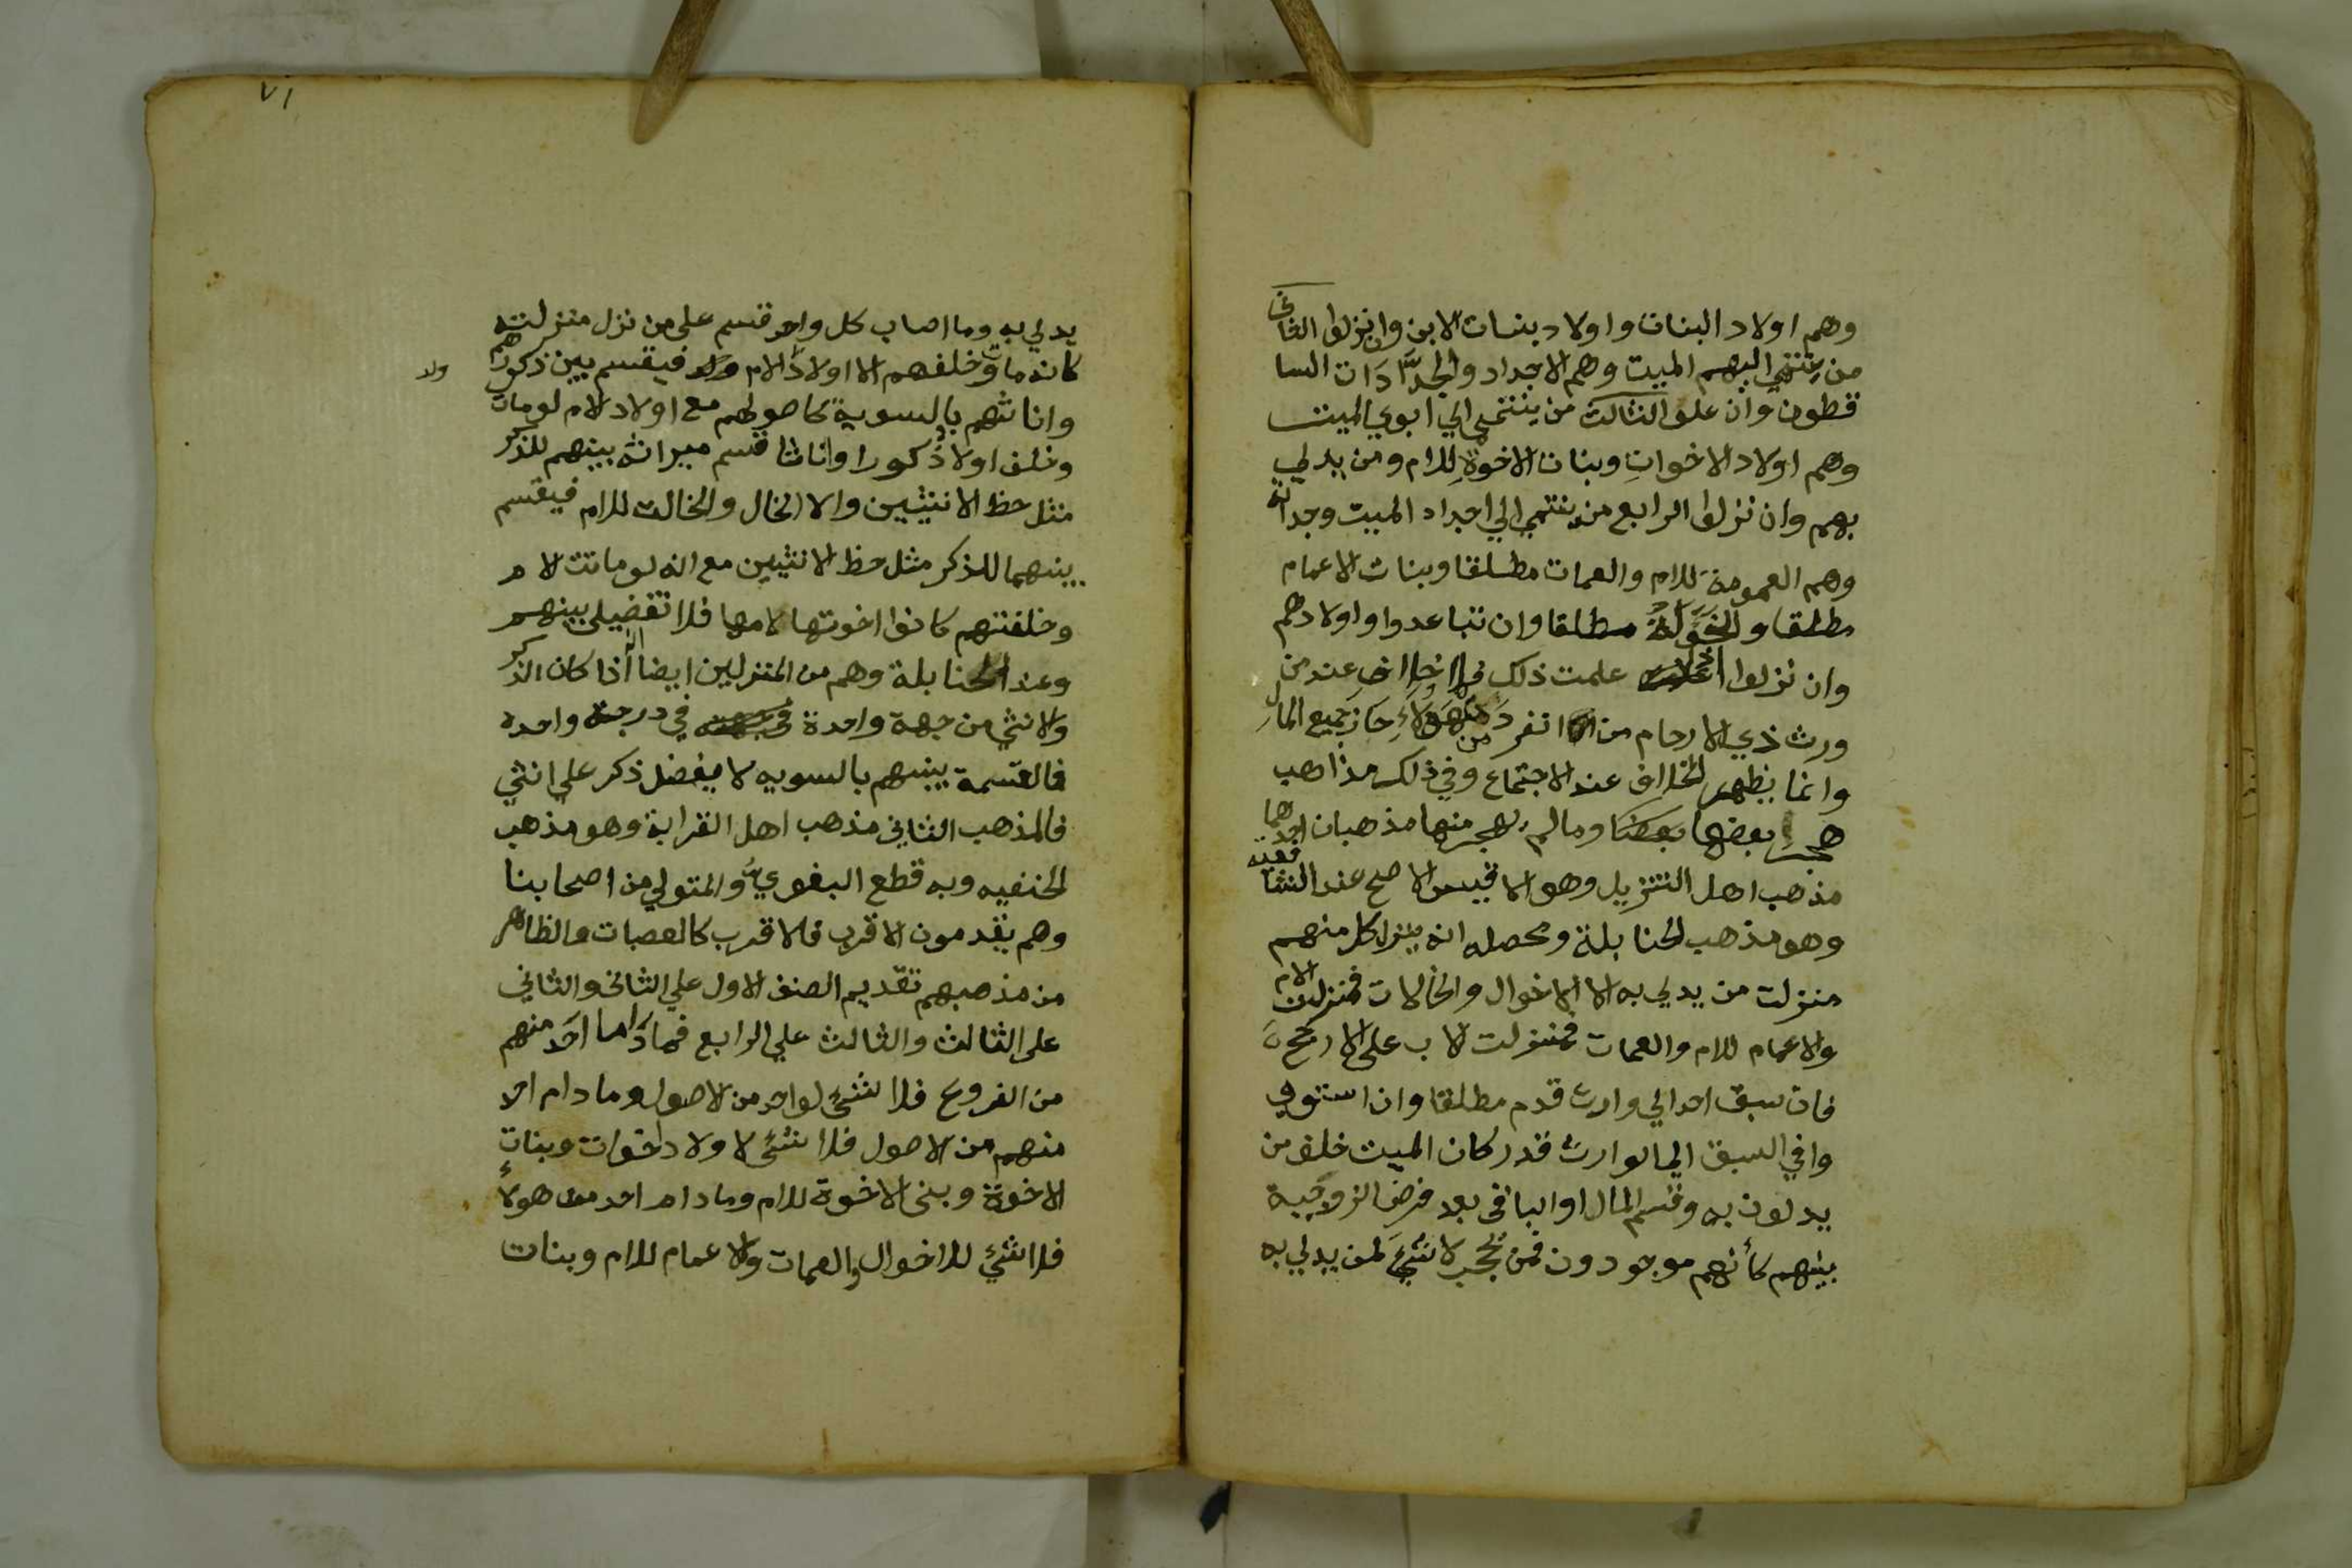 وهم اولاد البنات واولاد بنات الابن وان نزلوا الثاني
من ينتمي اليهم الميت وهم الاجداد والجدّات السا
قطون وان علو الثالث من ينتمي الي ابوي الميت
وهم اولاد الاخوات وبنات الاخوة للام ومن يدلي
بهم وان نزلوا الرابع من ينتمي الي اجداد الميت وجداته
وهم العمومة للام والعمات مطلقا وبنات الاعمام
مطلقا والخؤلة مطلقا وان تباعدوا واولادهم
وان نزلوا اذا علمت ذلك فلا خلاف عند من
ورث ذي الارحام من انفرد من هولاء حاز جميع المال
وانما يظهر الخلاف عند الاجتماع وفي ذلك مذاهب
هجر بعضها وما لم يهجر منها مذهبان احدهما
مذهب اهل التنزيل وهو الاقيس الاصح عند الشافعيه
وهو مذهب الحنابلة ومحصله انه ينزل كل منهم
منزلت من يدلي به الا الاخوال والخالات فمنزلت الام
والاعمام للام والعمات فمنزلت الاب على الارجح
فان سبق احد الي وارث قدم مطلقا وان استوو
وا في السبق الي الوارث قدر كان الميت خلف من
يدلون به وقسم المال او الباقي بعد فرض الزوجية
بينهم كأنهم موجودون فمن يحجب لا شيء لمن يدلي به
٧١
يدلي به وما اصاب كل واحد قسم على من نزل منزلته
كانه مات وخلفهم الا اولاد ولد الام فيقسم بين ذكورهم
واناثهم بالسوية كاصولهم مع اولاد الام لو مات
وخلف اولاد ذكورا واناثا قسم ميراثه بينهم للذكر
مثل حظ الانثيين والا الخال والخالت للام فيقسم
بينهما للذكر مثل حظ الانثيين مع انه لو ماتت الام
وخلفتهم كانوا اخوتها لامها فلا تفضيل بينهم
وعند الحنابلة وهم من المنزلين ايضا اذا كان الذكر
والانثي من جهة واحدة في درجة واحده
فالقسمة بينهم بالسويه لا يفضل ذكر علي انثي
فالمذهب الثاني مذهب اهل القرابة وهو مذهب
الحنفيه وبه قطع البغوي والمتولي من اصحابنا
وهم يقدمون الاقرب فالاقرب كالعصبات والظاهر
من مذهبهم تقديم الصنف الاول علي الثاني والثاني
على الثالث والثالث علي الرابع فما دام احد منهم
من الفروع فلا شيء لواحد من الاصول وما دام احد
منهم من الاصول فلا شيء لاولاد اخوات وبنات
الاخوة وبنى الاخوة للام وما دام احد من هولاء
فلا شيء للاخوال والعمات والاعمام للام وبنات
ولد